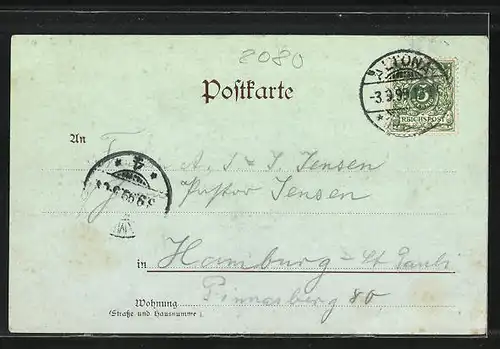 8080
Postkarte
ALTONA
-3.9.99
5
REICHSPOST
An
A. & S. Jensen
Pastor Jensen
in Hamburg - St Pauli
Pinnasberg 80
Wohnung
(Straße und Hausnummer).